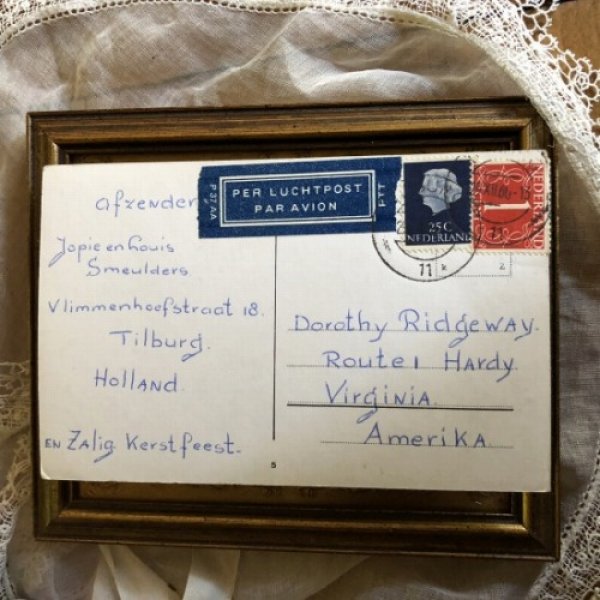 afzender
Jopie en Louis
Smeulders
Vlimmenhoefstraat 18.
Tilburg.
Holland.
EN Zalig Kerstfeest.
P 37 AA
PER LUCHTPOST
PAR AVION
PTT
25C
NEDERLAND
1
NEDERLAND
11 k
2
Dorothy Ridgeway.
Route 1 Hardy.
Virginia.
Amerika.
5